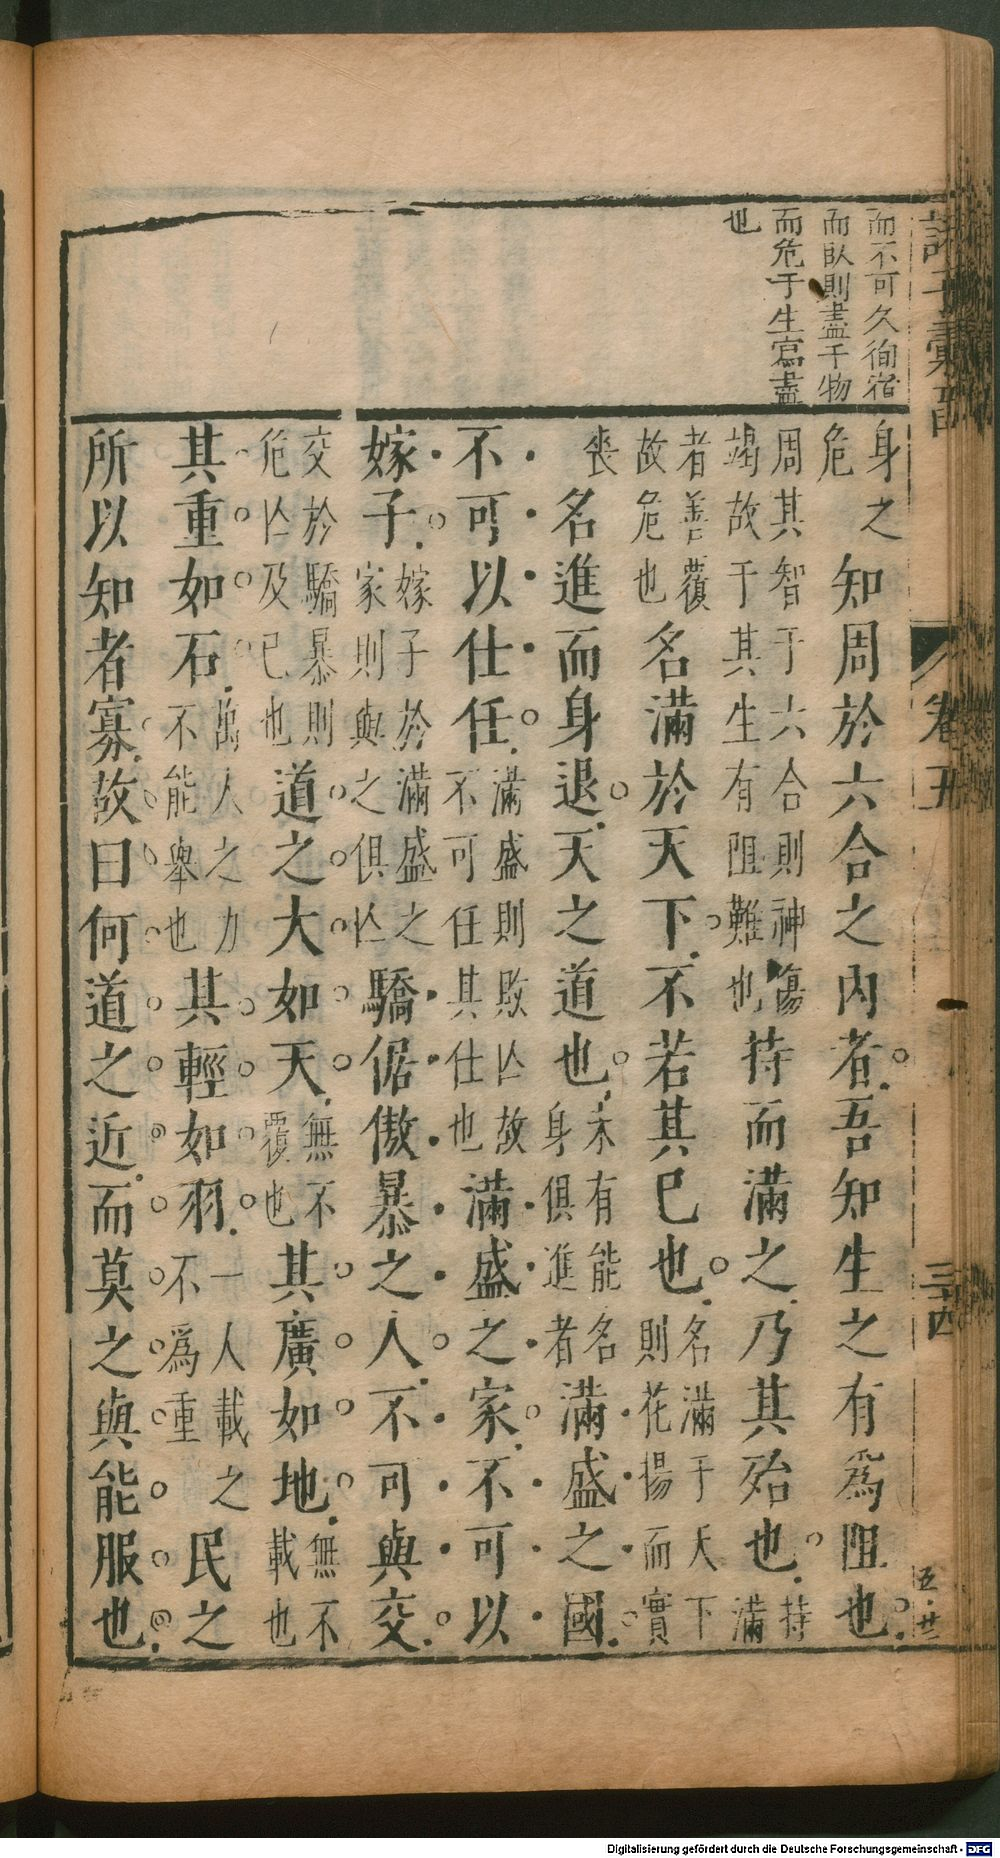 而不可久徇宿
而臥則盡于物
而危于生寫盡
也
身之危知周於六合之內者吾知生之有爲阻也
周其智于六合則神傷竭故于其生有阻難也持而滿之乃其殆也持滿
者善覆故危也名滿於天下不若其已也名滿于天下則花揚而實
喪名進而身退天之道也未有能名身俱進者滿盛之國
不可以仕任滿盛則敗亾故不可任其仕也滿盛之家不可以
嫁子嫁子於滿盛之家則與之俱亾驕倨傲暴之人不可與交
交於驕暴則危亾及已也道之大如天無不覆也其廣如地無不載也
其重如石萬人之力不能舉也其輕如羽一人載之不爲重民之
所以知者寡故曰何道之近而莫之與能服也
卷五
三十四
五·廿
Digitalisierung gefördert durch die Deutsche Forschungsgemeinschaft - DFG